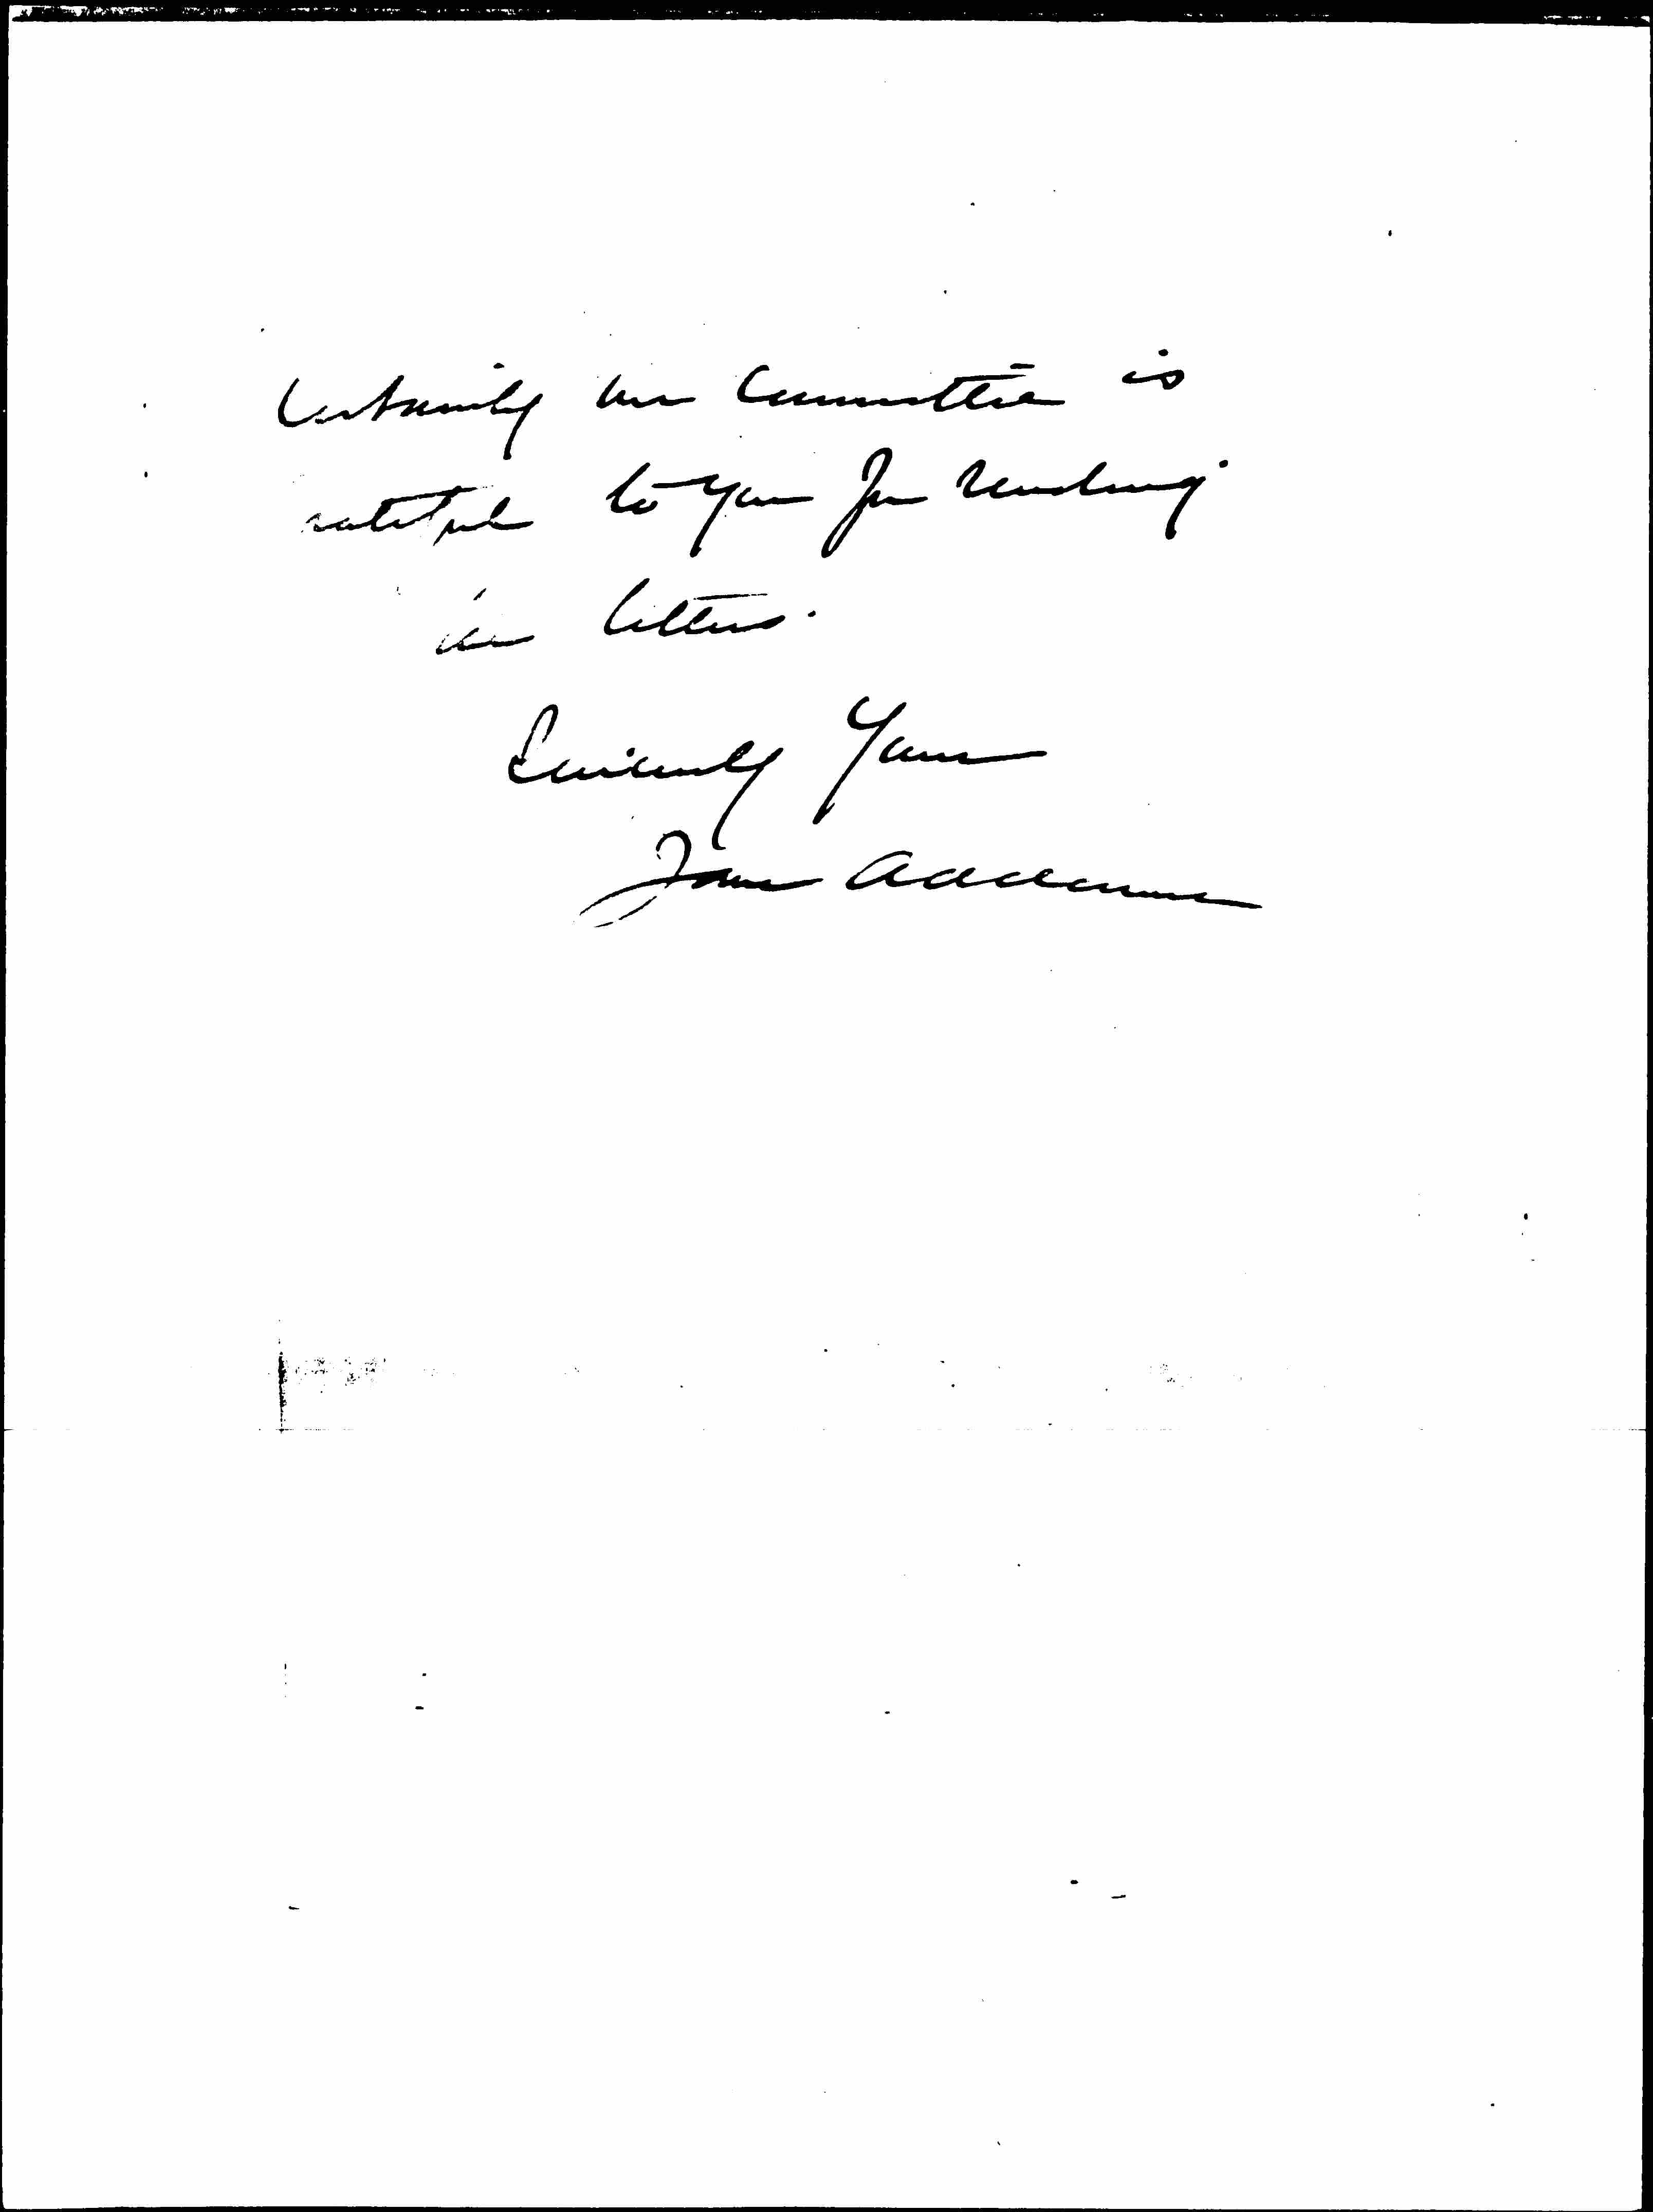 Certainly our Committee is
grateful to you for sending
the letters.
Sincerely Yours
Jane Addams